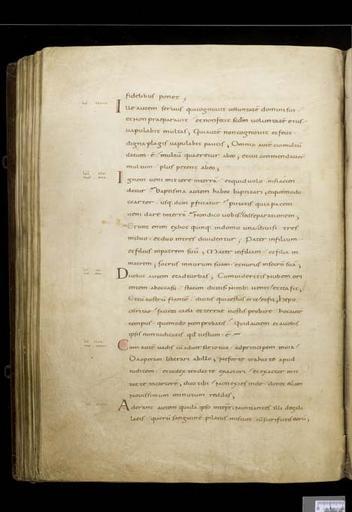 fidelibus ponet;
Ille autem seruus qui cognouit uoluntatē domini sui
et non praeparauit et non fecit scdm uoluntatē eius
uapulabit multas; Qui autē non cognouit et fecit
digna plagis uapulabit paucis; Omni autē cui multū
datum ē multū quaeretur ab eo; et cui commendauer
multum plus petent ab eo;
Ignem ueni mittere in terrā et quid uolo nisi accen
datur Baptisma autem habeo baptizari et quomodo
coartor usq. dum perficiatur putatis quia pacem
ueni dare in terrā non dico uobis sed separationem;
Erunt enim ex hoc quinq. in domo una diuisi tres
in duo et duo in tres diuidentur; Pater in filium
et filius in patrem suū; Mater in filiam et filia in
matrem; socrus in nurum suam et nurus in socrū suā;
Dicebat autem et ad turbas; Cum uideritis nubem ori
entem ab occasu statim dicitis nimbus uenit et ita fit;
Et cū austrū flantē dicitis quia estus erit et fit; hypo
critae faciem caeli et terrae nostis probare hoc autē
tempus quomodo non probatis Quid autem et a uobis
ipsis non iudicatis quod iustum ē
Cum autē uadis cū aduersario tuo ad principem in uia
Da operam liberari ab illo; ne forte trahat te apud
iudicem et iudex tradat te exactori et exactor mit
tat te in carcerem; dico tibi non exies inde donec etiam
nouissimum minutum reddas;
Aderant autem quidā ipso in tempr nuntiantes illi de gali
laeis quorū sanguinē pilatus miscuit cū sacrificiis eorū;